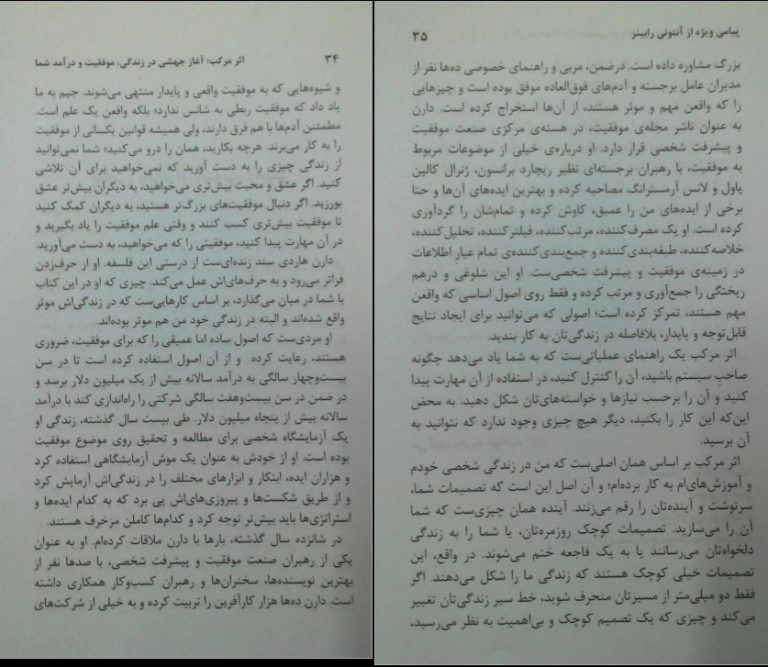 ۳۴ اثر مرکب؛ آغاز جهشی در زندگی، موفقیت و درآمد شما
و شیوه‌هایی که به موفقیت واقعی و پایدار منتهی می‌شوند. جیم به ما
یاد داد که موفقیت ربطی به شانس ندارد؛ بلکه واقعن یک علم است.
مطمئنن آدم‌ها با هم فرق دارند، ولی همیشه قوانین یکسانی از موفقیت
را به کار می‌برند. هرچه بکارید، همان را درو می‌کنید؛ شما نمی‌توانید
از زندگی چیزی را به دست آورید که نمی‌خواهید برای آن تلاشی
کنید. اگر عشق و محبت بیش‌تری می‌خواهید، به دیگران بیش‌تر عشق
بورزید. اگر دنبال موفقیت‌های بزرگ‌تر هستید، به دیگران کمک کنید
تا موفقیت بیش‌تری کسب کنند و وقتی علم موفقیت را یاد بگیرید و
در آن مهارت پیدا کنید، موفقیتی را که می‌خواهید، به دست می‌آورید.
دارن هاردی سند زنده‌ای‌ست از درستی این فلسفه. او از حرف‌زدن
فراتر می‌رود و به حرف‌های‌اش عمل می‌کند. چیزی که او در این کتاب
با شما در میان می‌گذارد، بر اساس کارهایی‌ست که در زندگی‌اش موثر
واقع شده‌اند و البته در زندگی خود من هم موثر بوده‌اند.
او مردی‌ست که اصول ساده اما عمیقی را که برای موفقیت، ضروری
هستند، رعایت کرده و از آن اصول استفاده کرده است تا در سن
بیست‌وچهار سالگی به درآمد سالانه بیش از یک میلیون دلار برسد و
در ضمن در سن بیست‌وهفت سالگی شرکتی را راه‌اندازی کند با درآمد
سالانه بیش از پنجاه میلیون دلار. طی بیست سال گذشته، زندگی او
یک آزمایشگاه شخصی برای مطالعه و تحقیق روی موضوع موفقیت
بوده است. او از خودش به عنوان یک موش آزمایشگاهی استفاده کرد
و هزاران ایده، ابتکار و ابزارهای مختلف را در زندگی‌اش آزمایش کرد
و از طریق شکست‌ها و پیروزی‌های‌اش پی برد که به کدام ایده‌ها و
استراتژی‌ها باید بیش‌تر توجه کرد و کدام‌ها کاملن مزخرف هستند.
در شانزده سال گذشته، بارها با دارن ملاقات کرده‌ام. او به عنوان
یکی از رهبران صنعت موفقیت و پیشرفت شخصی، با صدها نفر از
بهترین نویسنده‌ها، سخنران‌ها و رهبران کسب‌وکار همکاری داشته
است. دارن ده‌ها هزار کارآفرین را تربیت کرده و به خیلی از شرکت‌های
پیامی ویژه از آنتونی رابینز ۳۵
بزرگ مشاوره داده است. درضمن، مربی و راهنمای خصوصی ده‌ها نفر از
مدیران عامل برجسته و آدم‌های فوق‌العاده موفق بوده است و چیزهایی
را که واقعن مهم و موثر هستند، از آن‌ها استخراج کرده است. دارن
به عنوان ناشر مجله‌ی موفقیت، در هسته‌ی مرکزی صنعت موفقیت
و پیشرفت شخصی قرار دارد. او درباره‌ی خیلی از موضوعات مربوط
به موفقیت، با رهبران برجسته‌ای نظیر ریچارد برانسون، ژنرال کالین
پاول و لانس آرمسترانگ مصاحبه کرده و بهترین ایده‌های آن‌ها و حتا
برخی از ایده‌های من را عمیق، کاوش کرده و تمام‌شان را گردآوری
کرده است. او یک مصرف‌کننده، مرتب‌کننده، فیلترکننده، تحلیل‌کننده،
خلاصه‌کننده، طبقه‌بندی‌کننده و جمع‌بندی‌کننده‌ی تمام عیار اطلاعات
در زمینه‌ی موفقیت و پیشرفت شخصی‌ست. او این شلوغی و درهم
ریختگی را جمع‌آوری و مرتب کرده و فقط روی اصول اساسی که واقعن
مهم هستند، تمرکز کرده است؛ اصولی که می‌توانید برای ایجاد نتایج
قابل‌توجه و پایدار، بلافاصله در زندگی‌تان به کار بندید.
اثر مرکب یک راهنمای عملیاتی‌ست که به شما یاد می‌دهد چگونه
صاحب سیستم باشید، آن را کنترل کنید، در استفاده از آن مهارت پیدا
کنید و آن را برحسب نیازها و خواسته‌های‌تان شکل دهید. به محض
این‌که این کار را بکنید، دیگر هیچ چیزی وجود ندارد که نتوانید به
آن برسید.
اثر مرکب بر اساس همان اصلی‌ست که من در زندگی شخصی خودم
و آموزش‌های‌ام به کار برده‌ام؛ و آن اصل این است که تصمیمات شما،
سرنوشت و آینده‌تان را رقم می‌زنند. آینده همان چیزی‌ست که شما
آن را می‌سازید. تصمیمات کوچک روزمره‌تان، یا شما را به زندگی
دلخواه‌تان می‌رسانند یا به یک فاجعه ختم می‌شوند. در واقع، این
تصمیمات خیلی کوچک هستند که زندگی ما را شکل می‌دهند. اگر
فقط دو میلی‌متر از مسیرتان منحرف شوید، خط سیر زندگی‌تان تغییر
می‌کند و چیزی که یک تصمیم کوچک و بی‌اهمیت به نظر می‌رسید،